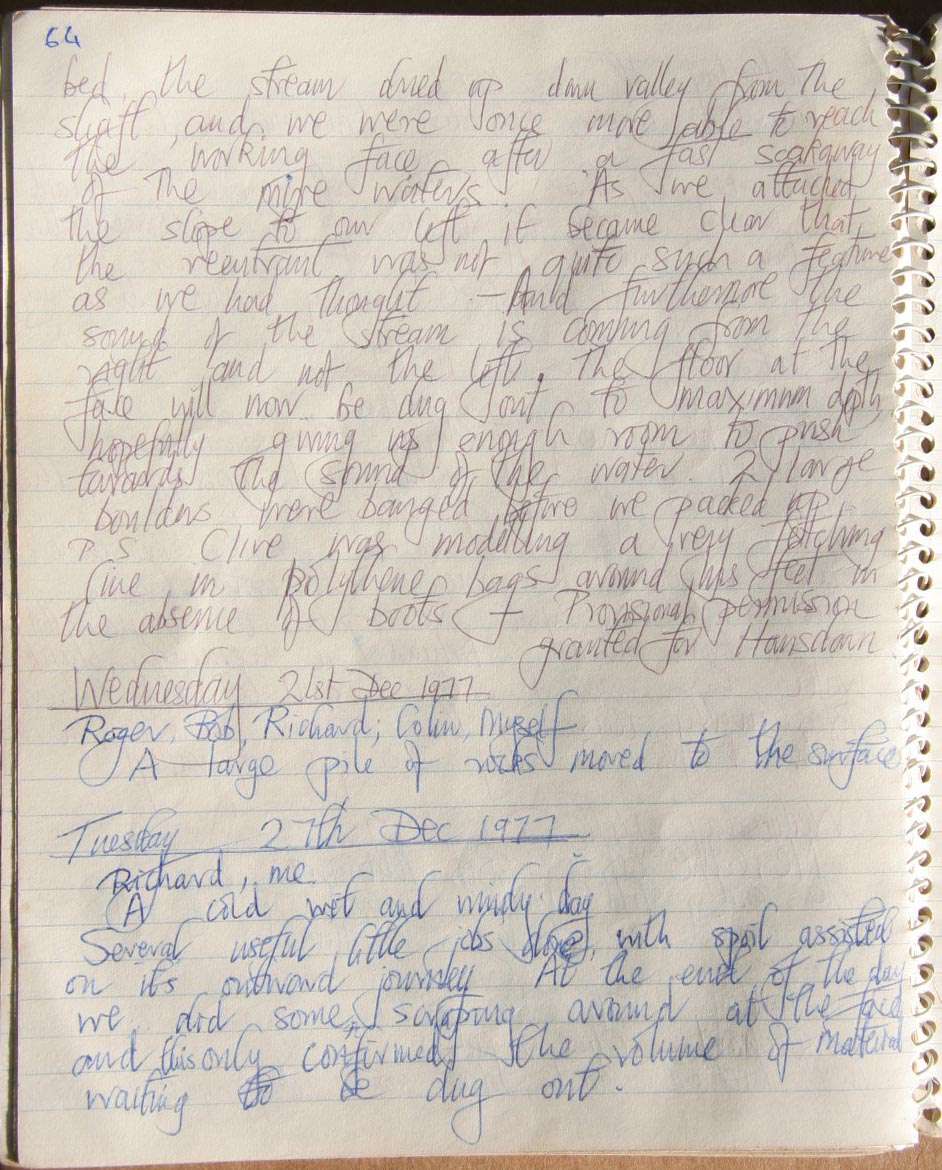 64
bed, the stream dried up down valley from the
shaft and we were once more able to reach
the working face after a fast soakaway
of the mine waters. As we attacked
the slope to our left it became clear that
the reentrant was not quite such a feature
as we had thought - And furthermore the
sound of the stream is comming from the
right and not the left. The floor at the
face will now be dug out to maximum depth,
hopefully giving us enough room to push
towards the sound of the water. 2 large
boulders were banged before we packed up.
P.S. Clive was modelling a very fetching
line in polythene bags around his feet in
the absence of boots - Provisional permission
granted for Hansdown
Wednesday 21st Dec 1977
Roger, Bob, Richard, Colin, Myself
A large pile of rocks moved to the surface
Tuesday 27th Dec 1977
Richard, me.
A cold wet and windy day
Several useful little jobs done, with spoil assisted
on its outward journey. At the end of the day
we did some scraping around at the face
and this only confirmed the volume of material
waiting to be dug out.